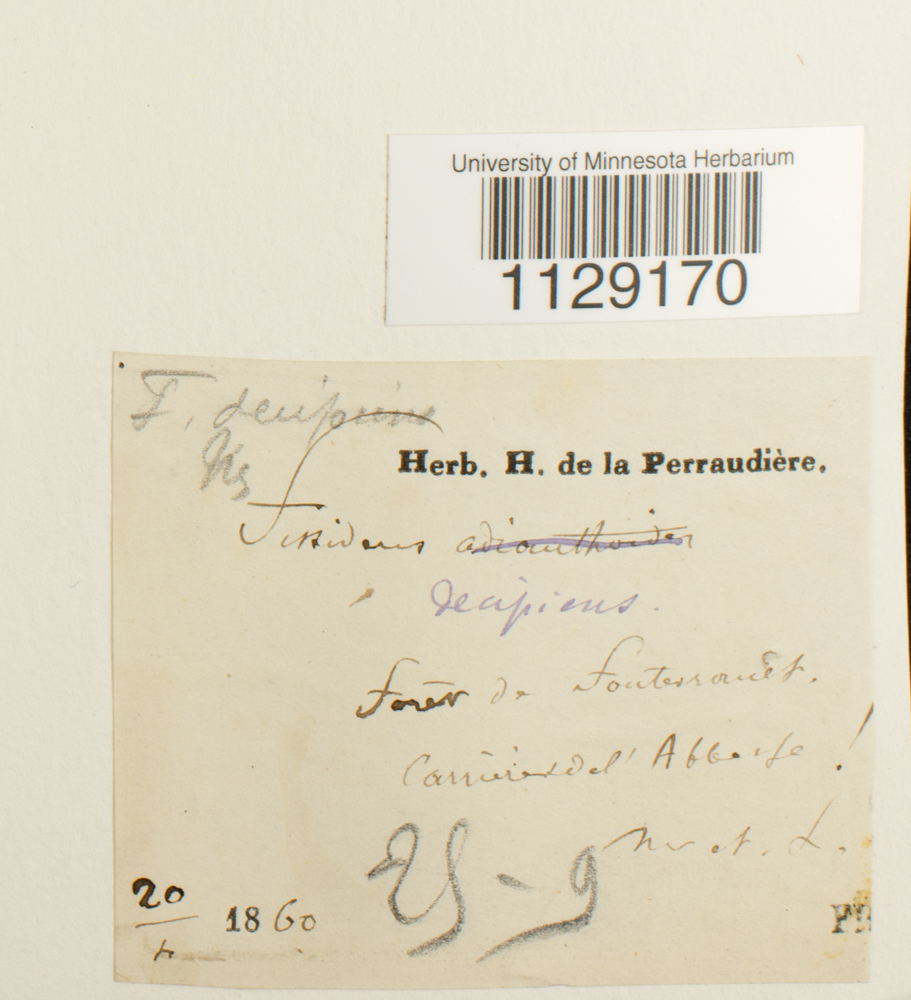 University of Minnesota Herbarium
1129170
F. decipiens
Herb. H. de la Perraudière.
Fissidens adianthoides
decipiens.
Forêt de
Carrières de l'Abbaye !
M et L.
25-9
20
1860